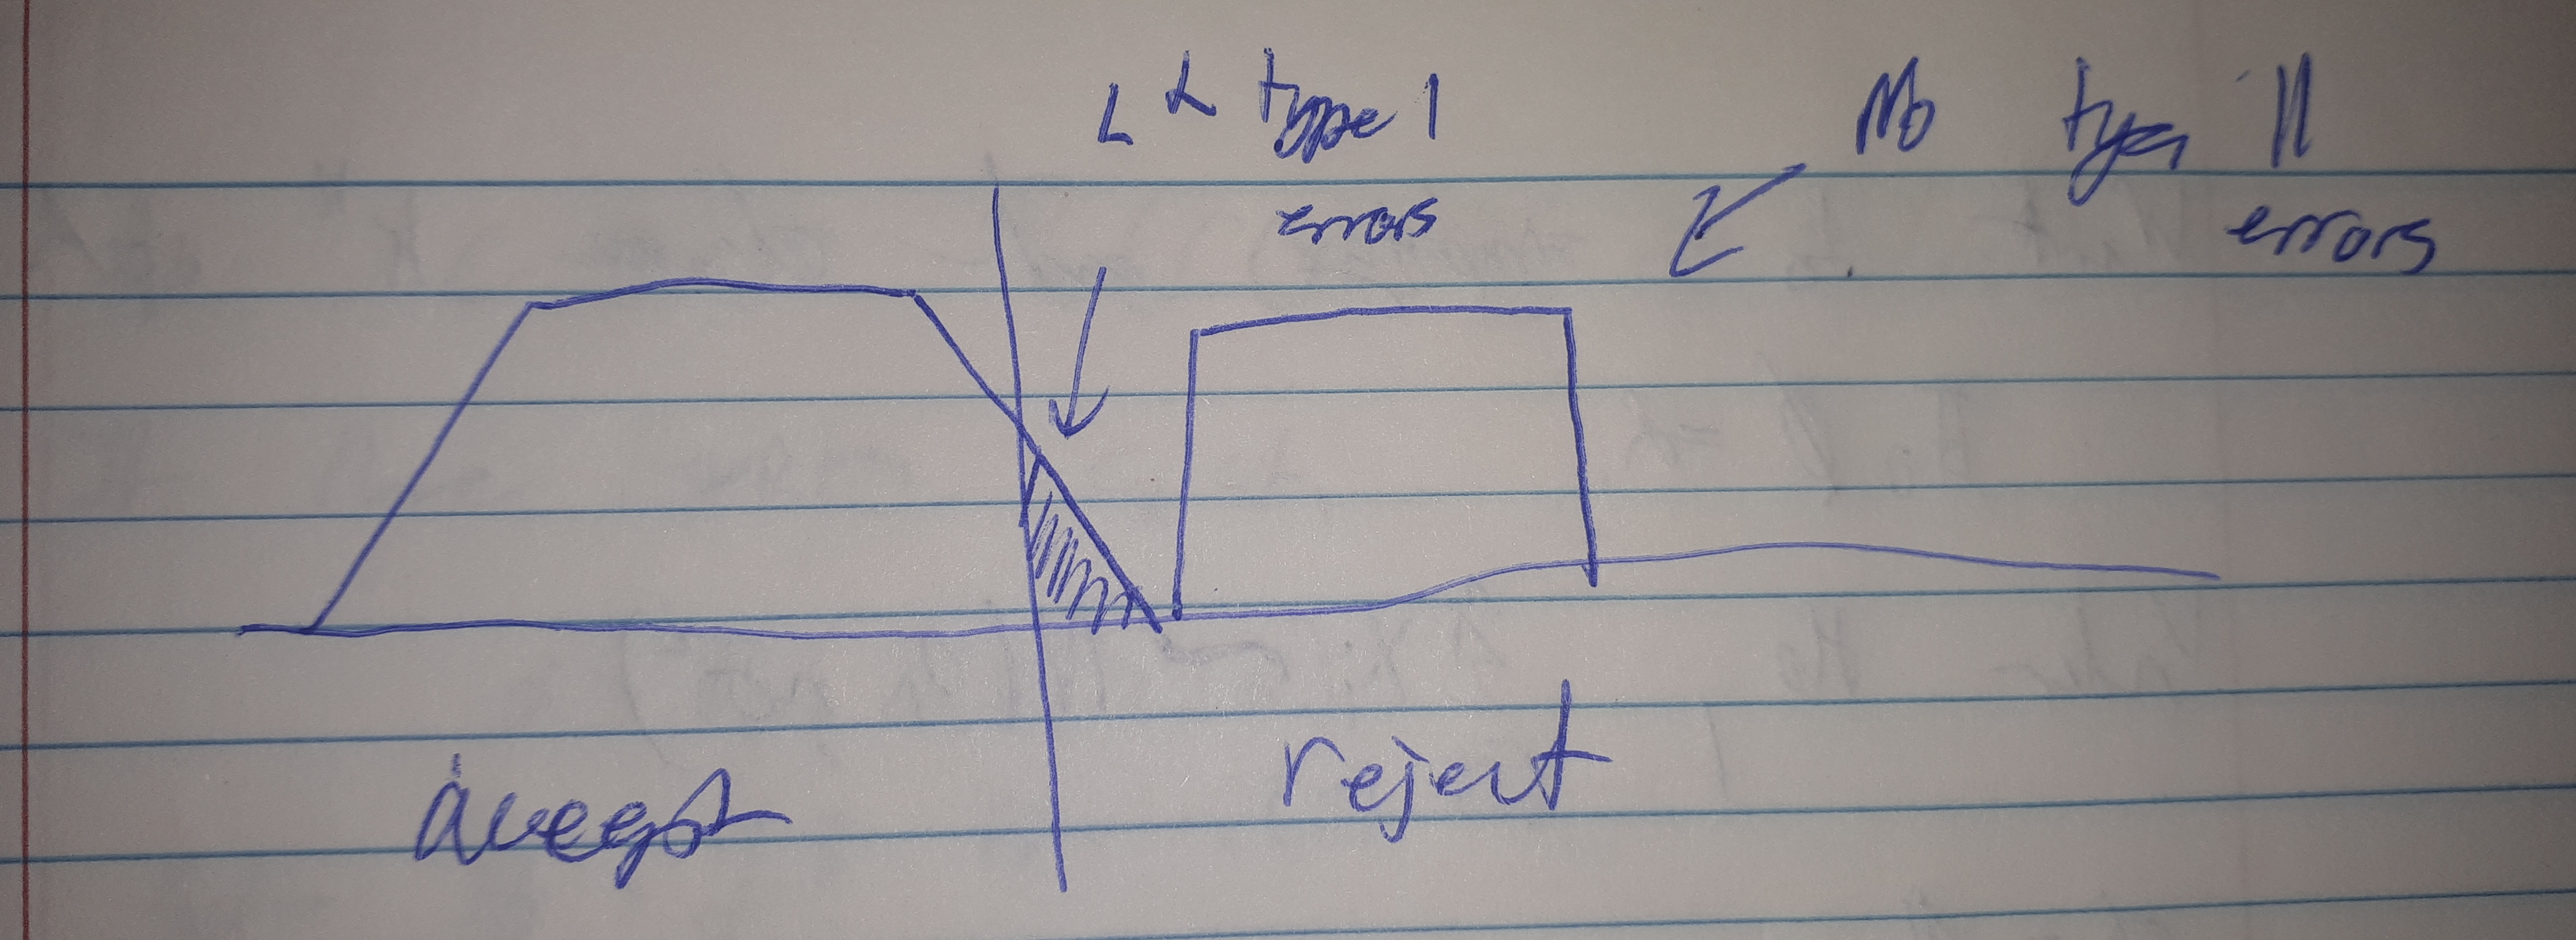 L α type I
errors
No type II
errors
accept
reject